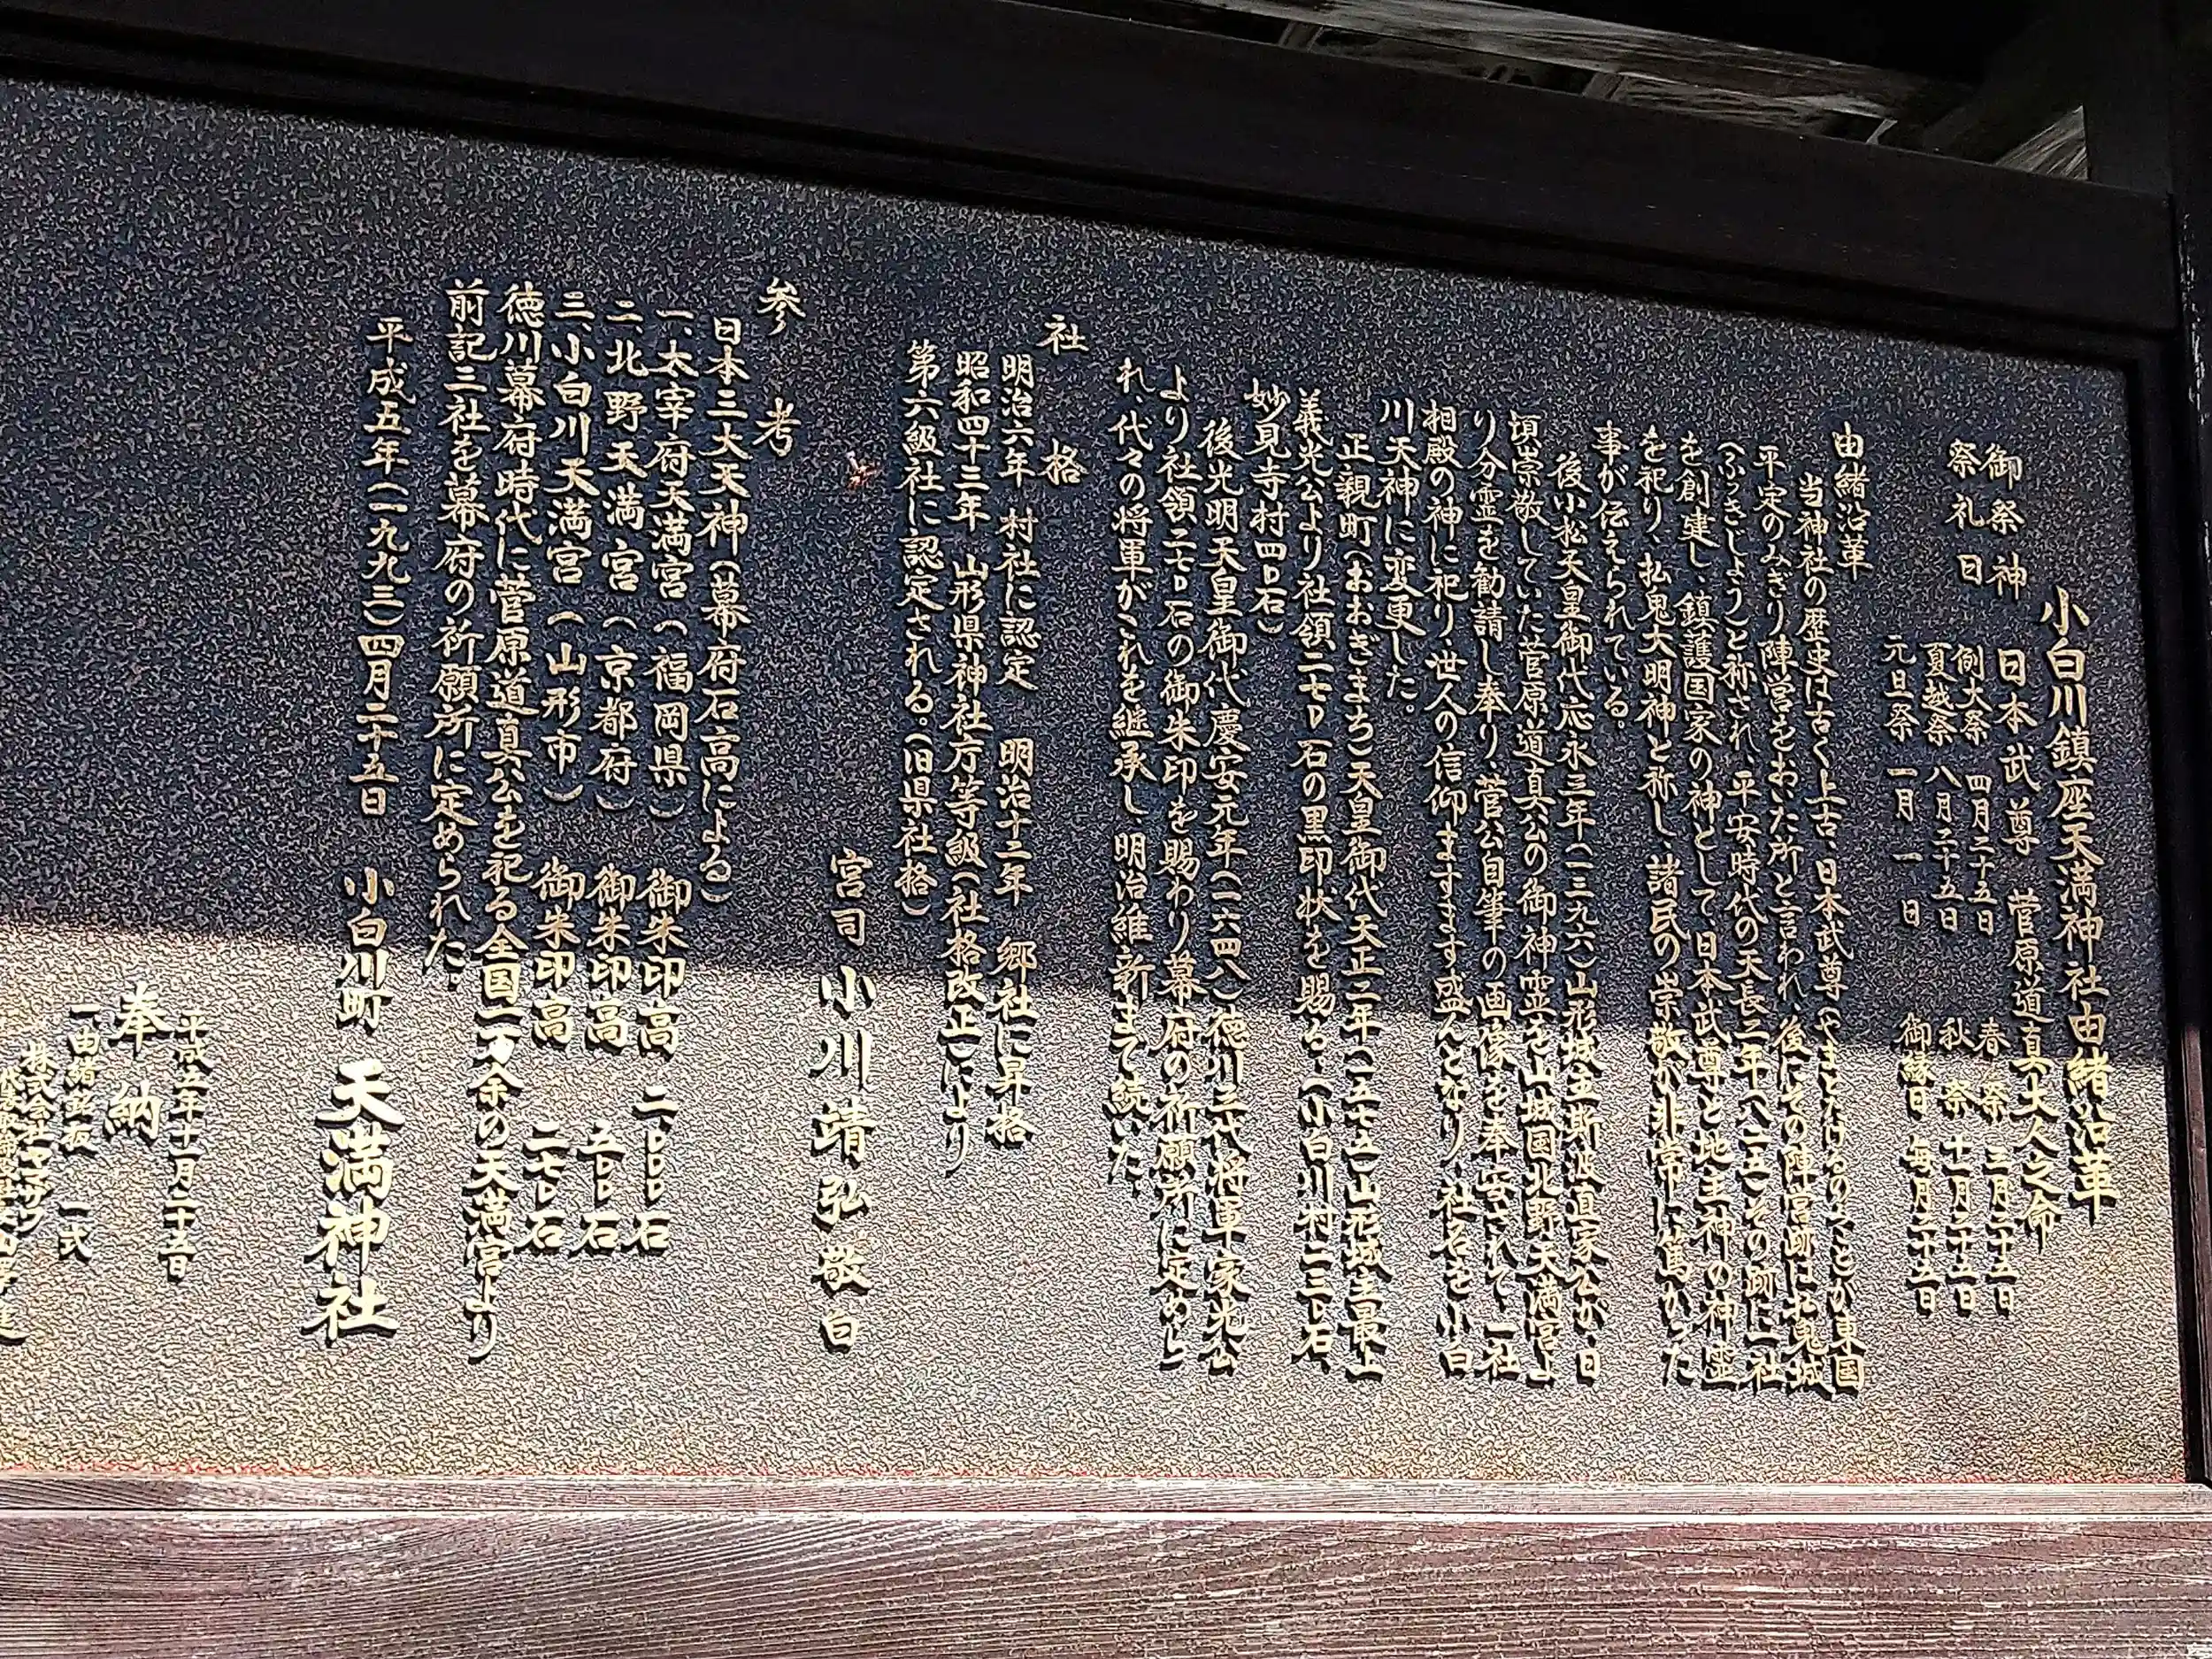 小白川鎮座天満神社由緒沿革
御祭神 日本武尊 菅原道真大人之命
祭礼日 例大祭 四月二十五日 春祭 三月二十五日
夏越祭 八月二十五日 秋祭 十一月二十五日
元旦祭 一月一日 御縁日 毎月二十五日
由緒沿革
当神社の歴史は古く上古、日本武尊(やまとたけるのみこと)が東国
平定のみぎり陣営をおいた所と言われ 後にその陣営跡に払鬼城
(ふつきじょう)と称され、平安時代の天長二年(八二五)その跡に一社
を創建し、鎮護国家の神として日本武尊と地主神の神霊
を祀り、払鬼大明神と称し、諸民の崇敬が非常に篤かった
事が伝えられている。
後小松天皇御代応永三年(一三九六)山形城主斯波直家公が、日
頃崇敬していた菅原道真公の御神霊を山城国北野天満宮よ
り分霊を勧請し奉り、菅公自筆の画像を奉安されて、一社
相殿の神に祀り、世人の信仰ますます盛んとなり、社名を小白
川天神に変更した。
正親町(おおぎまち)天皇御代天正二年(一五七五)山形城主最上
義光公より社領二七〇石の黒印状を賜る。(小白川村二三〇石、
妙見寺村四〇石)
後光明天皇御代慶安元年(一六四八)徳川三代将軍家光公
より社領二七〇石の御朱印を賜わり幕府の祈願所に定めら
れ、代々の将軍がこれを継承し 明治維新まで続いた。
社格
明治六年 村社に認定 明治十二年 郷社に昇格
昭和四十三年 山形県神社庁等級(社格改正)により
第六級社に認定される。(旧県社格)
宮司 小川靖弘 敬白
参考
日本三大天神(幕府石高による)
一、太宰府天満宮(福岡県) 御朱印高 二〇〇〇石
二、北野天満宮(京都府) 御朱印高 五〇〇石
三、小白川天満宮(山形市) 御朱印高 二七〇石
徳川幕府時代に菅原道真公を祀る全国一万余の天満宮より
前記三社を幕府の祈願所に定められた。
平成五年(一九九三)四月二十五日 小白川町 天満神社
平成五年十一月二十五日
奉納
一、由緒銘板 一式
株式会社ヤマザワ